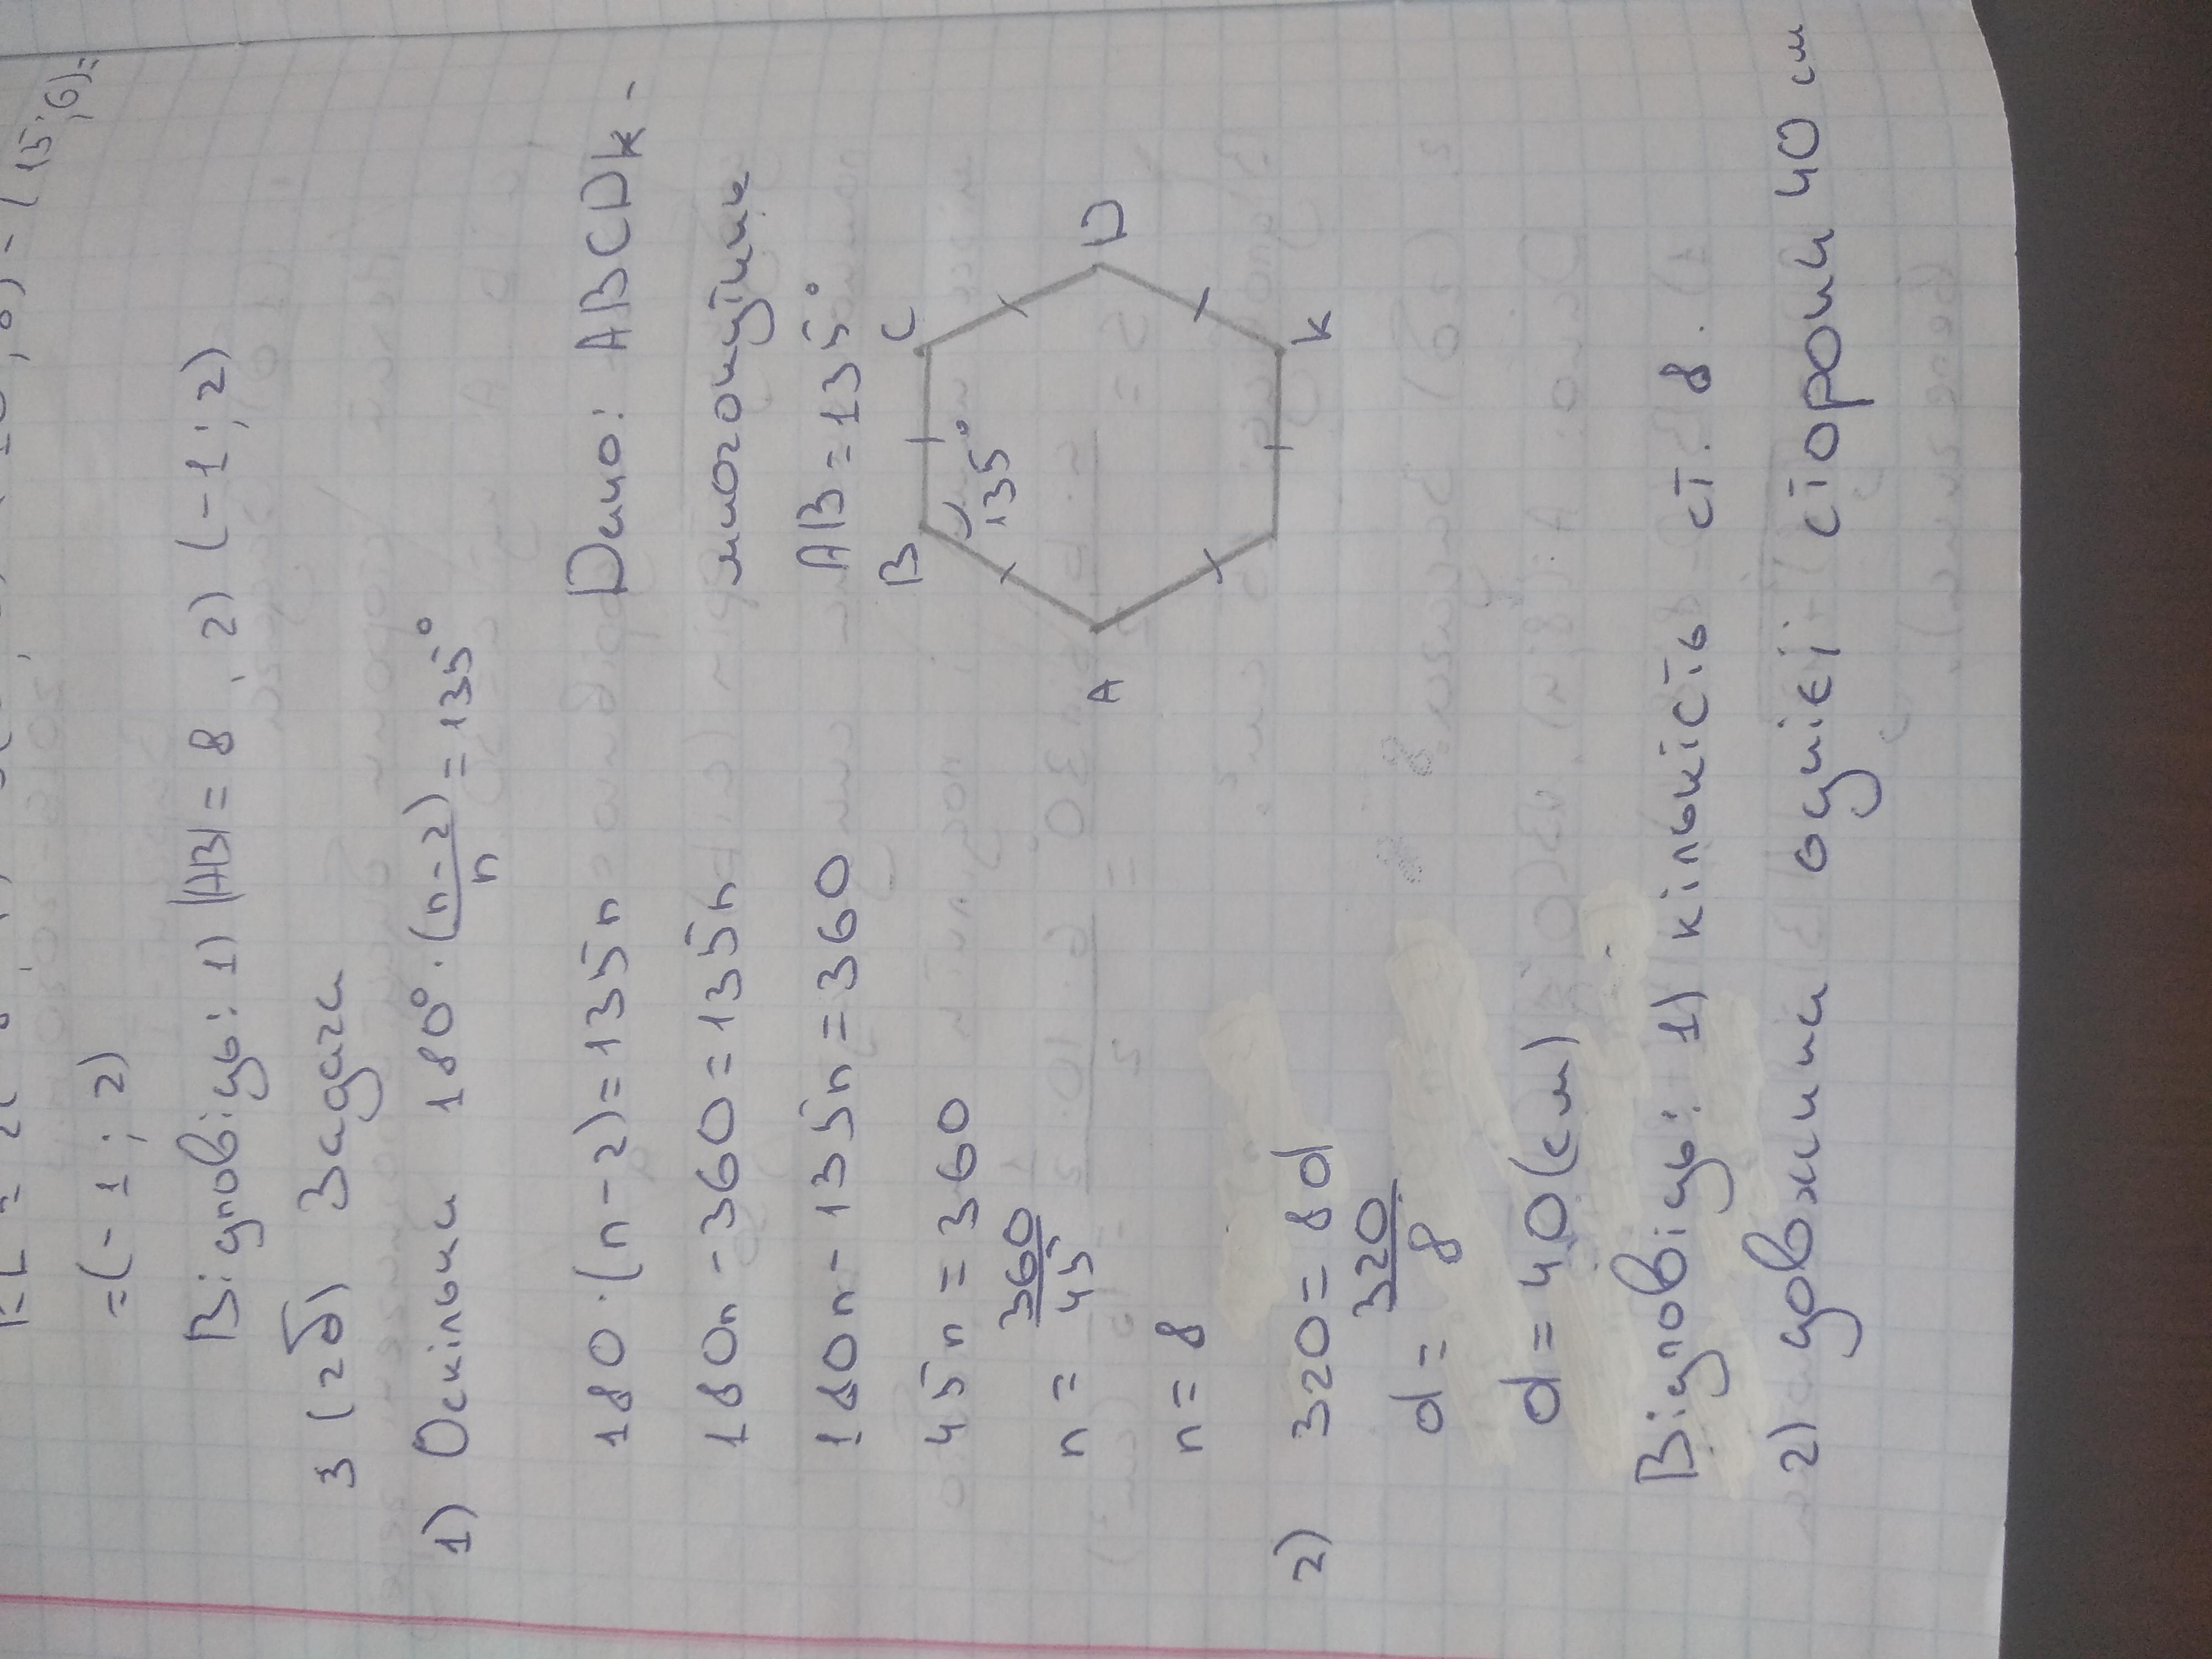 =(-1; 2)
Відповідь: 1) |AB| = 8 , 2) (-1; 2)
3 (2б) Задача
1) Оскільки 180° · (n-2)/n = 135°
Дано: ABCDK -
многокутник
AB = 135°
180 · (n-2) = 135n
180n - 360 = 135n
180n - 135n = 360
45n = 360
n = 360/45
n = 8
B
C
135°
A
D
K
2) 320 = 8d
d = 320/8
d = 40 (см)
Відповідь: 1) кількість ст. 8.
2) довжина однієї сторони 40 см